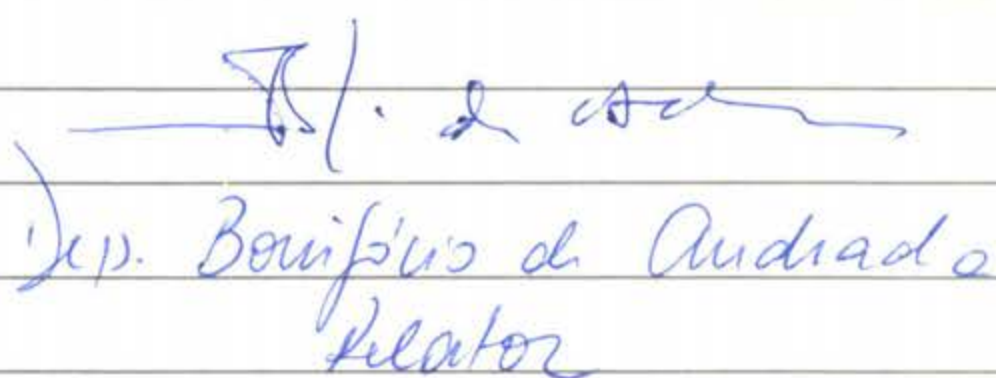 Dep. Bonifácio de Andrada
Relator